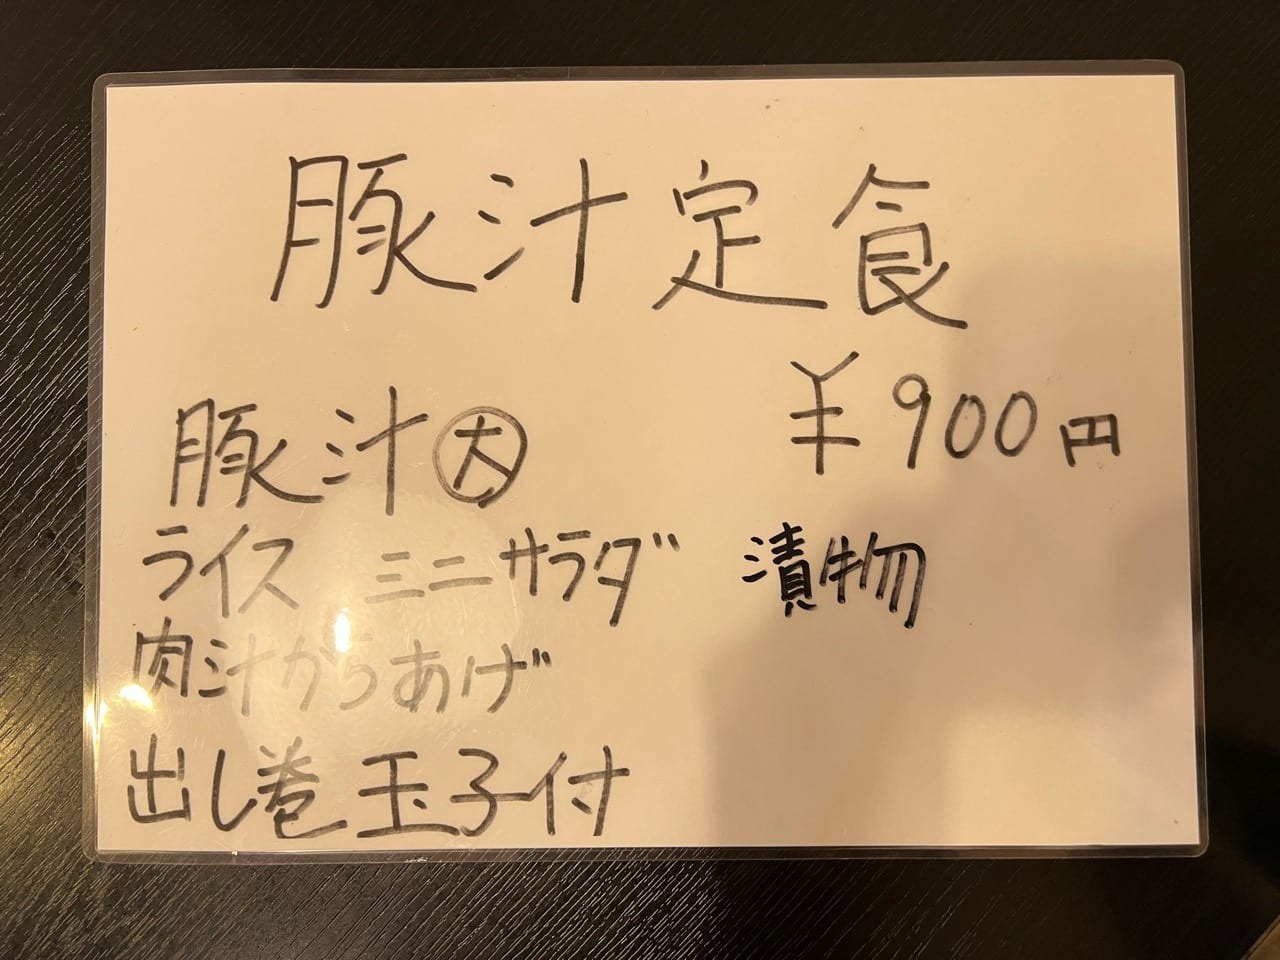 豚汁定食
¥900円
豚汁㊛
ライス ミニサラダ 漬物
肉汁からあげ
出し巻玉子付